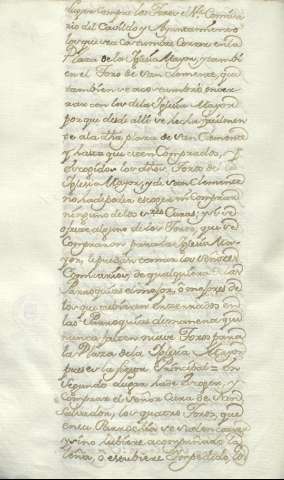 lugar compre los Toros el Sr. Comisa
rio del Cavildo y Ayuntamiento
los que se a costumbra Correr en la
Plaza de la Iglesia Mayor, y tambi
en el Toro de San Clemente, que
tambien se acostumbra encer
rar con los de la Iglesia Mayor
por que desde alli se les ha
a la dha. plaza de San Clemente
y hasta que esten Comprados, y
Escogidos los dhos. Toros de la
Iglesia Mayor, y de San Clemente
no ha de poder escoger ni comprar
ninguno de los Sres. Curas; y si se
alguno de los Toros, que se
Compraron para la Iglesia Ma
yor, le puedan tomar los Señores
Comisarios, de qualquiera de las
Parroquias el mejor, o mejores de
los que estubieren encerrados en
las Parroquias de manera que
nunca falten nueve Toros para
la Plaza de la Iglesia Mayor
pues es la fiesta Principal = En
segundo lugar hade escoger, y
Comprar el Señor Cura de San
Salvador, los quatro Toros, que
en su Parroquia se suelen correr
y si no tubiere acompañado la
ô estubiere Impedido, lo